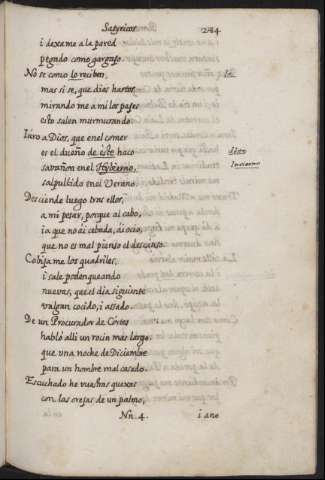 Satyricos. 244
i dexame a la pared
pegado como gargajo.
No se como lo reciben,
mas si se, que dias hartos
mirando me a mi los pajes
esto salen murmurando.
Iuro a Dios, que en el comer
es el dueño de este haco
savañon en el Hybierno,
salpullido en el Verano.
Desciende luego tras ellos,
a mi pesar, porque al cabo,
ia que no ai cebada, ai ocio,
que no es mal pienso el descanso.
Cobija me los quadriles,
i sale podenqueando
nuevas, que el dia siguiente
valgan cocido, i assado.
De un Procurador de Cortes
habló alli un rocin mas largo,
que una noche de Diciembre
para un hombre mal casado.
Escuchado he vuestras quexas
con las orejas de un palmo,
Nn. 4. i ano